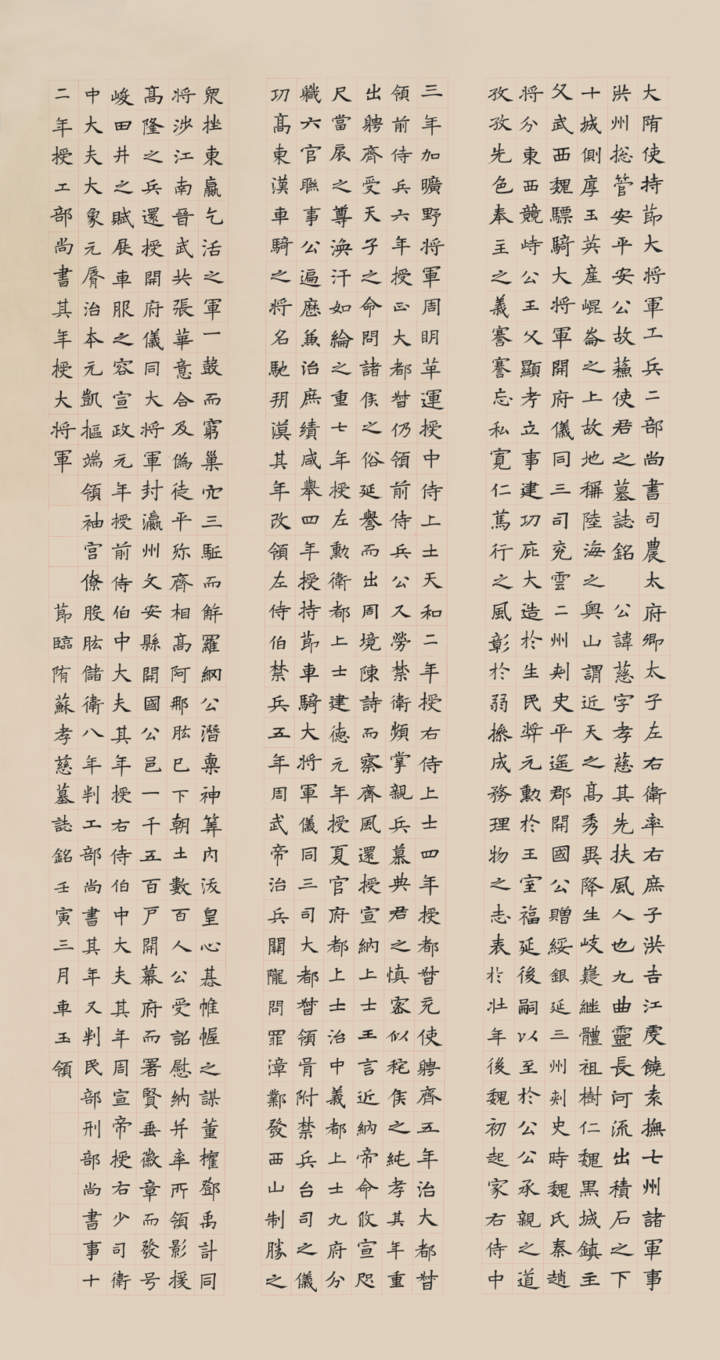 大隋使持節大將軍工兵二部尚書司農太府卿太子左右衛率右庶子洪吉江虔饒袁撫七州諸軍事
洪州総管安平安公故蘓使君之墓誌銘 公諱慈字孝慈其先扶風人也九曲靈長河流出積石之下
十城側厚玉英産崐崙之上故地稱陸海之奥山謂近天之髙秀異降生岐嶷継體祖樹仁魏黒城鎮主
父武西魏驃騎大將軍開府儀同三司兖雲二州刾史平遥郡開國公贈綏銀延三州刾史時魏氏秦趙
將分東西競峙公王父顯考立事建功庇大造於生民奬元勳於王室福延後嗣以至於公公承親之道
孜孜先色奉主之義謇謇忘私寛仁篤行之風彰於弱操成務理物之志表於壮年後魏初起家右侍中
三年加曠野將軍周明革運授中侍上土天和二年授右侍上士四年授都督元使聘齊五年治大都督
領前侍兵六年授正大都督仍領前侍兵公又勞禁衛頻掌親兵慕典君之慎密似秺侯之純孝其年重
出聘齊受天子之命問諸侯之俗延譽而出周境陳詩而察齊風還授宣納上士王言近納帝命攸宣咫
尺當扆之尊渙汗如綸之重七年授左勳衛都上士建徳元年授夏官府都上士治中義都上士九府分
職六官聮事公遍歴兼治庶績咸舉四年授持節車騎大將軍儀同三司大都督領胥附禁兵台司之儀
功髙東漢車騎之將名馳朔漠其年改領左侍伯禁兵五年周武帝治兵關隴問罪漳鄴發西山制勝之
衆挫東嬴乞活之軍一鼓而窮巢穴三駈而解羅網公潜禀神筭内沃皇心碁帷幄之謀董欋鄧禹計同
將涉江南晉武共張華意合及偽徒平殄齊相髙阿那肱已下朝土數百人公受詔慰納并率所領影援
髙隆之兵還授開府儀同大將軍封瀛州文安縣開國公邑一千五百戸開幕府而署賢垂徽章而發号
峻田井之賦展車服之容宣政元年授前侍伯中大夫其年授右侍伯中大夫其年周宣帝授右少司衛
中大夫大象元脣治本元凱樞端領袖宮僚股肱儲衛八年判工部尚書其年又判民部刑部尚書事十
二年授工部尚書其年授大將軍 節臨隋蘇孝慈墓誌銘壬寅三月車玉領